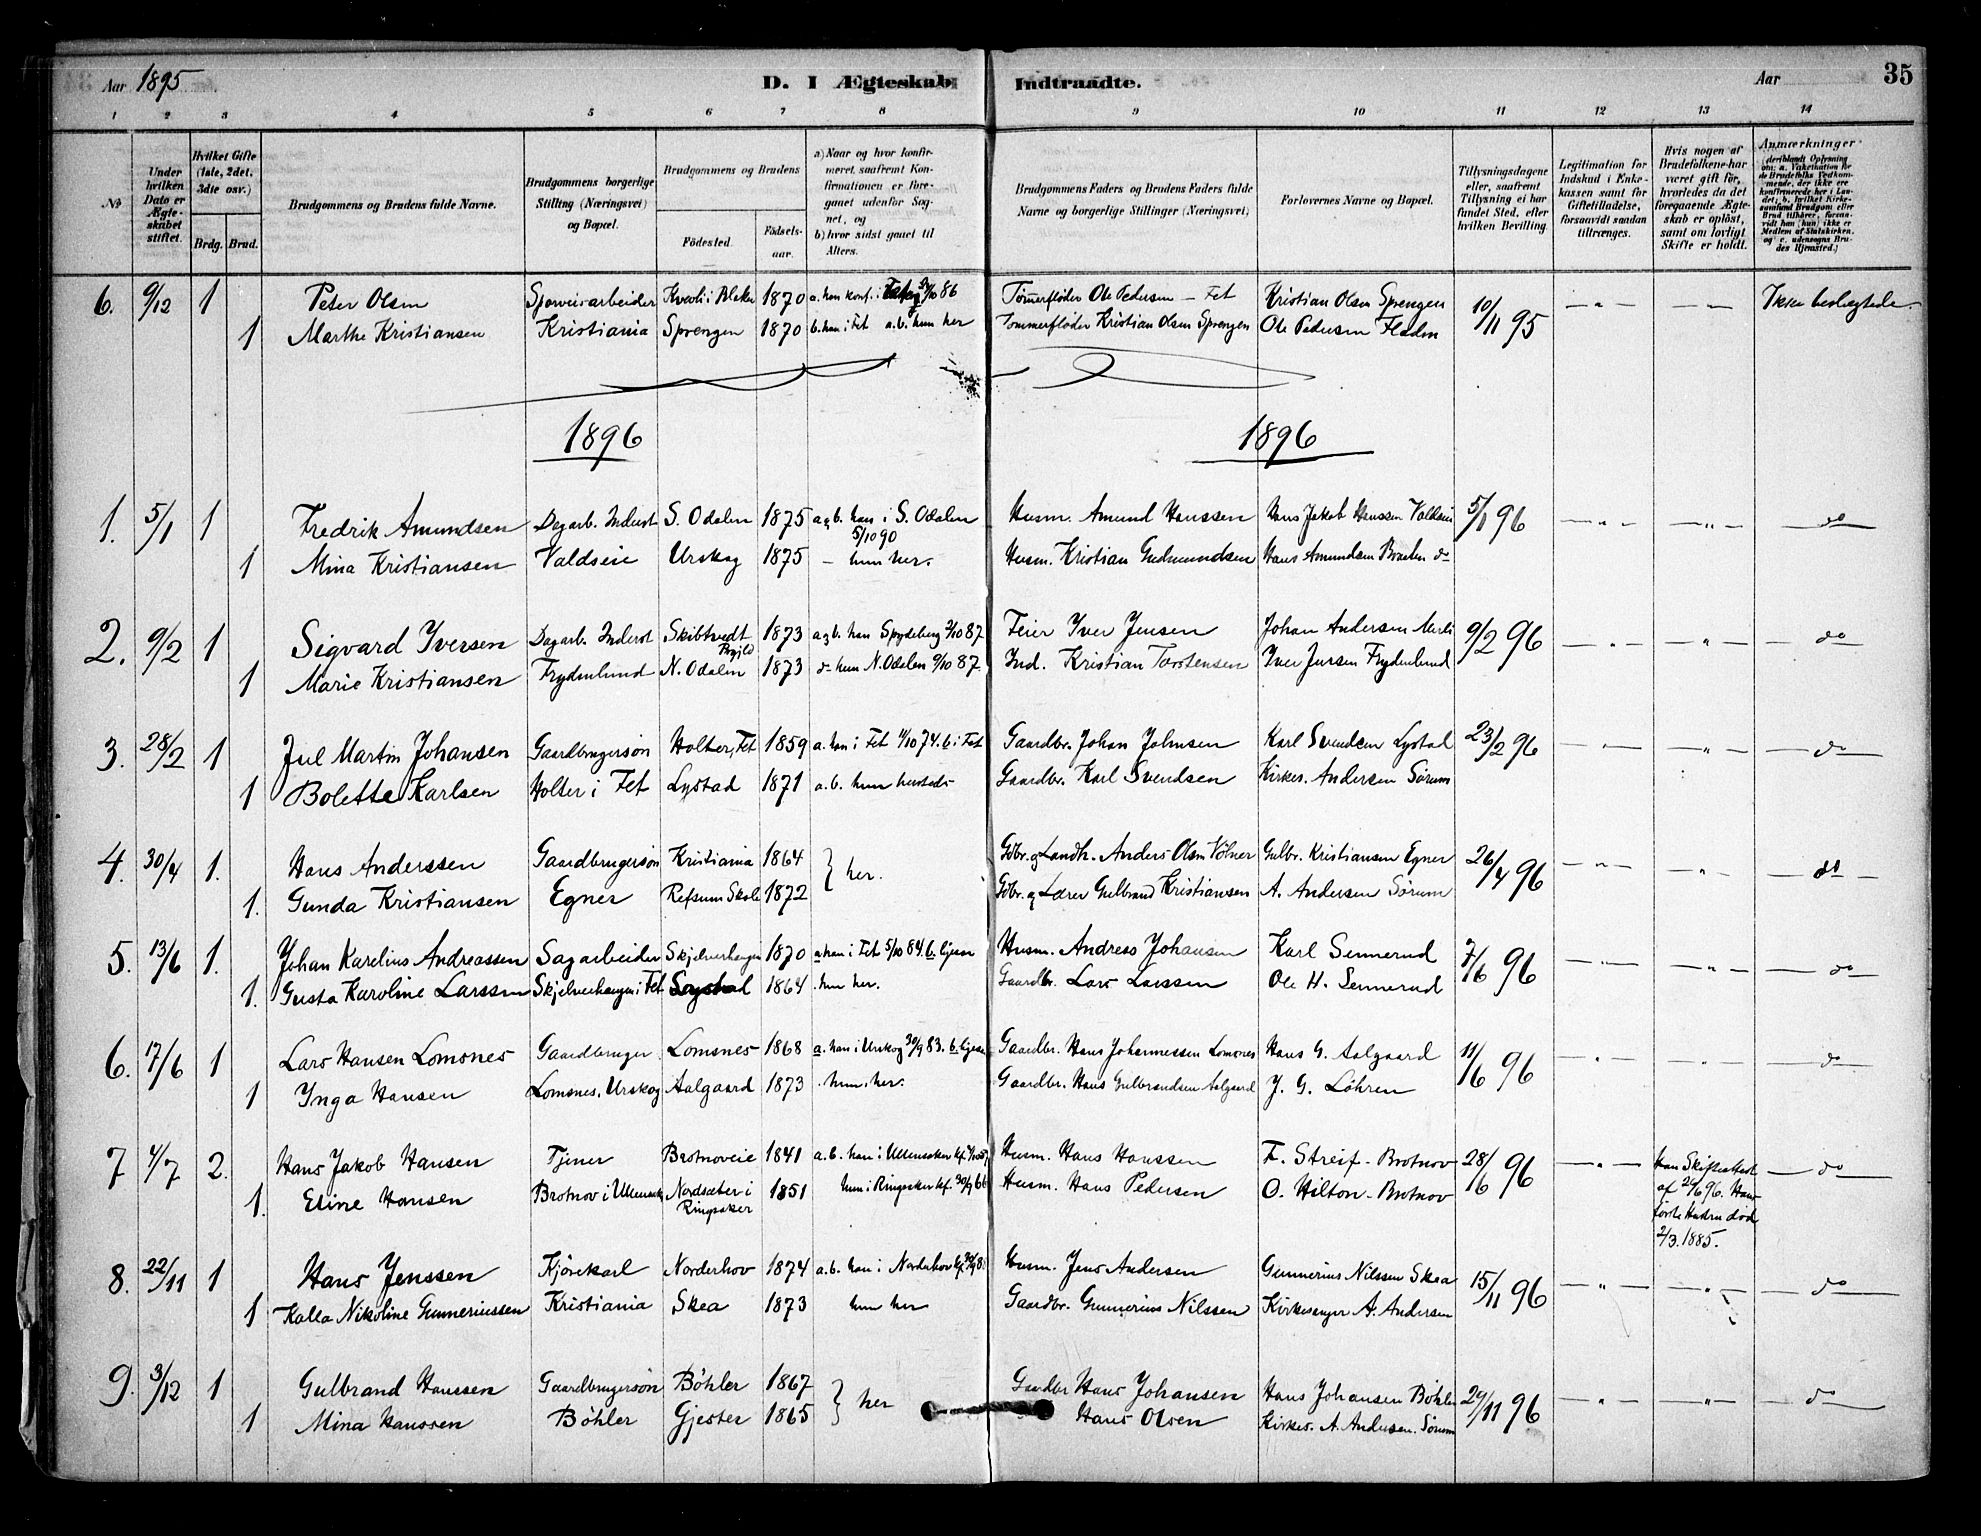 Aar 1895 D. I Ægteskab Indtraadte. Aar 35
1 2 3 4 5 6 7 8 9 10 11 12 13 14
№
Under hvilken Dato er Ægteskabet stiftet.
Hvilket Gifte (1ste, 2det, 3die osv.)
Brdg. Brud.
Brudgommens og Brudens fulde Navne.
Brudgommens borgerlige Stilling (Næringsvei) og Bopæl.
Brudgommens og Brudens
Fødested. Fødselsaar.
a) Naar og hvor konfirmeret, saafremt Konfirmationen er foregaaet udenfor Sognet, og
b) hvor sidst gaaet til Alters.
Brudgommens Faders og Brudens Faders fulde Navne og borgerlige Stillinger (Næringsvei)
Forlovernes Navne og Bopæl.
Tillysningsdagene eller, saafremt Tillysning ei har fundet Sted, efter hvilken Bevilling.
Legitimation for Indskud i Enkekassen samt for Giftetilladelse, forsaavidt saadan tiltrænges.
Hvis nogen af Brudefolkene har været gift før, hvorledes da det foregaaende Ægteskab er opløst, samt om lovligt Skifte er holdt.
Anmærkninger (deriblandt Oplysning om: a. Vaksination for de Brudefolks Vedkommende, der ikke ere konfirmerede her i Landet; b. hvilket Kirkesamfund Brudgom eller Brud tilhører, forsaavidt han (hun) ikke er Medlem af Statskirken, og c. udensogns Brudes Hjemsted.)
6. 9/12 1 Peter Olsen Sporveisarbeider Kveoli i Blaker 1870 a. han konf. i Fet 86 Tømmerfløder Ole Pedersen - Fet Kristian Olsen Sprengen 10/11 95 — " — — " — Ikke beslægtede
1 Marthe Kristiansen Kristiania Sprengen 1870 b. han i Fet a. b. hun her Tømmerfløder Kristian Olsen Sprengen Ole Pedersen
1896 1896
1. 5/1 1 Fredrik Amundsen Dagarb. Inderst S. Odalen 1875 a og b. han i S. Odalen 5/10 90 Husm. Amund Hanssen Hans Jakob Hanssen Valdseie 5/1 96 — " — — " — do
1 Mina Kristiansen Valdseie Urskog 1875 — hun her. Husm. Kristian Gudmundsen Hans Amundsen Braaten do
2. 9/2 1 Sigvard Yversen Dagarb. Inderst Skibtvedt 1873 a og b. han Spydeberg 2/10 87 Feier Yver Jensen Johan Andersen 9/2 96 — " — — " — do
1 Marie Kristiansen Frydenlund N. Odalen 1873 do hun N. Odalen 9/10 87. Ind. Kristian Torstensen Yver Jensen Frydenlund
3. 28/2 1 Jul Martin Johansen Gaardbrugersøn Holter, Fet 1859 a. han i Fet 11/10 74. b. i Fet Gaardbr. Johan Johnsen Karl Svendsen Lystad 23/2 96 — " — — " — do
1 Bolette Karlsen Holter i Fet Lystad 1871 a. b. hun hersteds Gaardbr. Karl Svendsen Kirkes. Andersen Sørum
4. 30/4 1. Hans Anderssen Gaardbrugersøn Kristiania 1864 } her. Gdbr. og Landh. Anders Olsen Vølner Gulbr. Kristiansen Egner 26/4 96 — " — — " — do
1. Gunda Kristiansen Egner Refsum Skole 1872 Gdbr. og Lærer Gulbrand Kristiansen A. Andersen Sørum
5. 13/6 1. Johan Karelius Andreassen Sagarbeider Skjelverhangen 1870 a. han i Fet 5/10 84. b. ligesaa Husm. Andreas Johansen Karl Sennerud 7/6 96 — " — — " — do
1. Gusta Karoline Larssen Skjelverhangen i Fet 1864 . hun her. Gaardbr. Lars Larssen Ole H. Sennerud
6. 17/6 1 Lars Hansen Lomsnes Gaardbruger Lomsnes 1868 a. han i Urskog 30/9 83. b. ligesaa Gaardbr. Hans Johannessen Lomsnes Hans G. Aalgaard 11/6 96 — " — — " — do
1 Ynga Hansen Lomsnes, Urskog Aalgaard 1873 . hun. her. Gaardbr. Hans Gulbrandsen Aalgaard J. G. Løhren
7 4/7 2. Hans Jakob Hansen Tjener Brotnoveie 1841 a. b. han i Ullensaker Husm. Hans Hanssen F. Streif - Brotnov 28/6 96 — " — Han Skifteattest af 24/6 96. Hans første Hustru død 2/3. 1885. — do
1. Eline Hansen Brotnov i Ullensaker Nordsæter i Ringsaker 1851 hun i Ringsaker kf. 30/9 66 Husm. Hans Pedersen O. Hilton - Brotnov
8. 22/11 1 Hans Jenssen Kjørekarl Norderhov 1874 a. b. han i Norderhov Husm. Jens Andersen Gunnerius Nilssen Skea 15/11 96 — " — — " — do
1 Kalla Nikoline Gunneriussen Kristiania Skea 1873 hun her Gaardbr. Gunnerius Nilssen Kirkesanger A. Andersen
9. 3/12 1 Gulbrand Hanssen Gaardbrugersøn Bøhler 1867 } her Gaardbr Hans Johansen Hans Johansen Bøhler 29/11 96 — " — — " — do
1 Mina Hanssen Bøhler Gjester 1865 Hans Olsen Kirkes. A. Andersen. Sørum